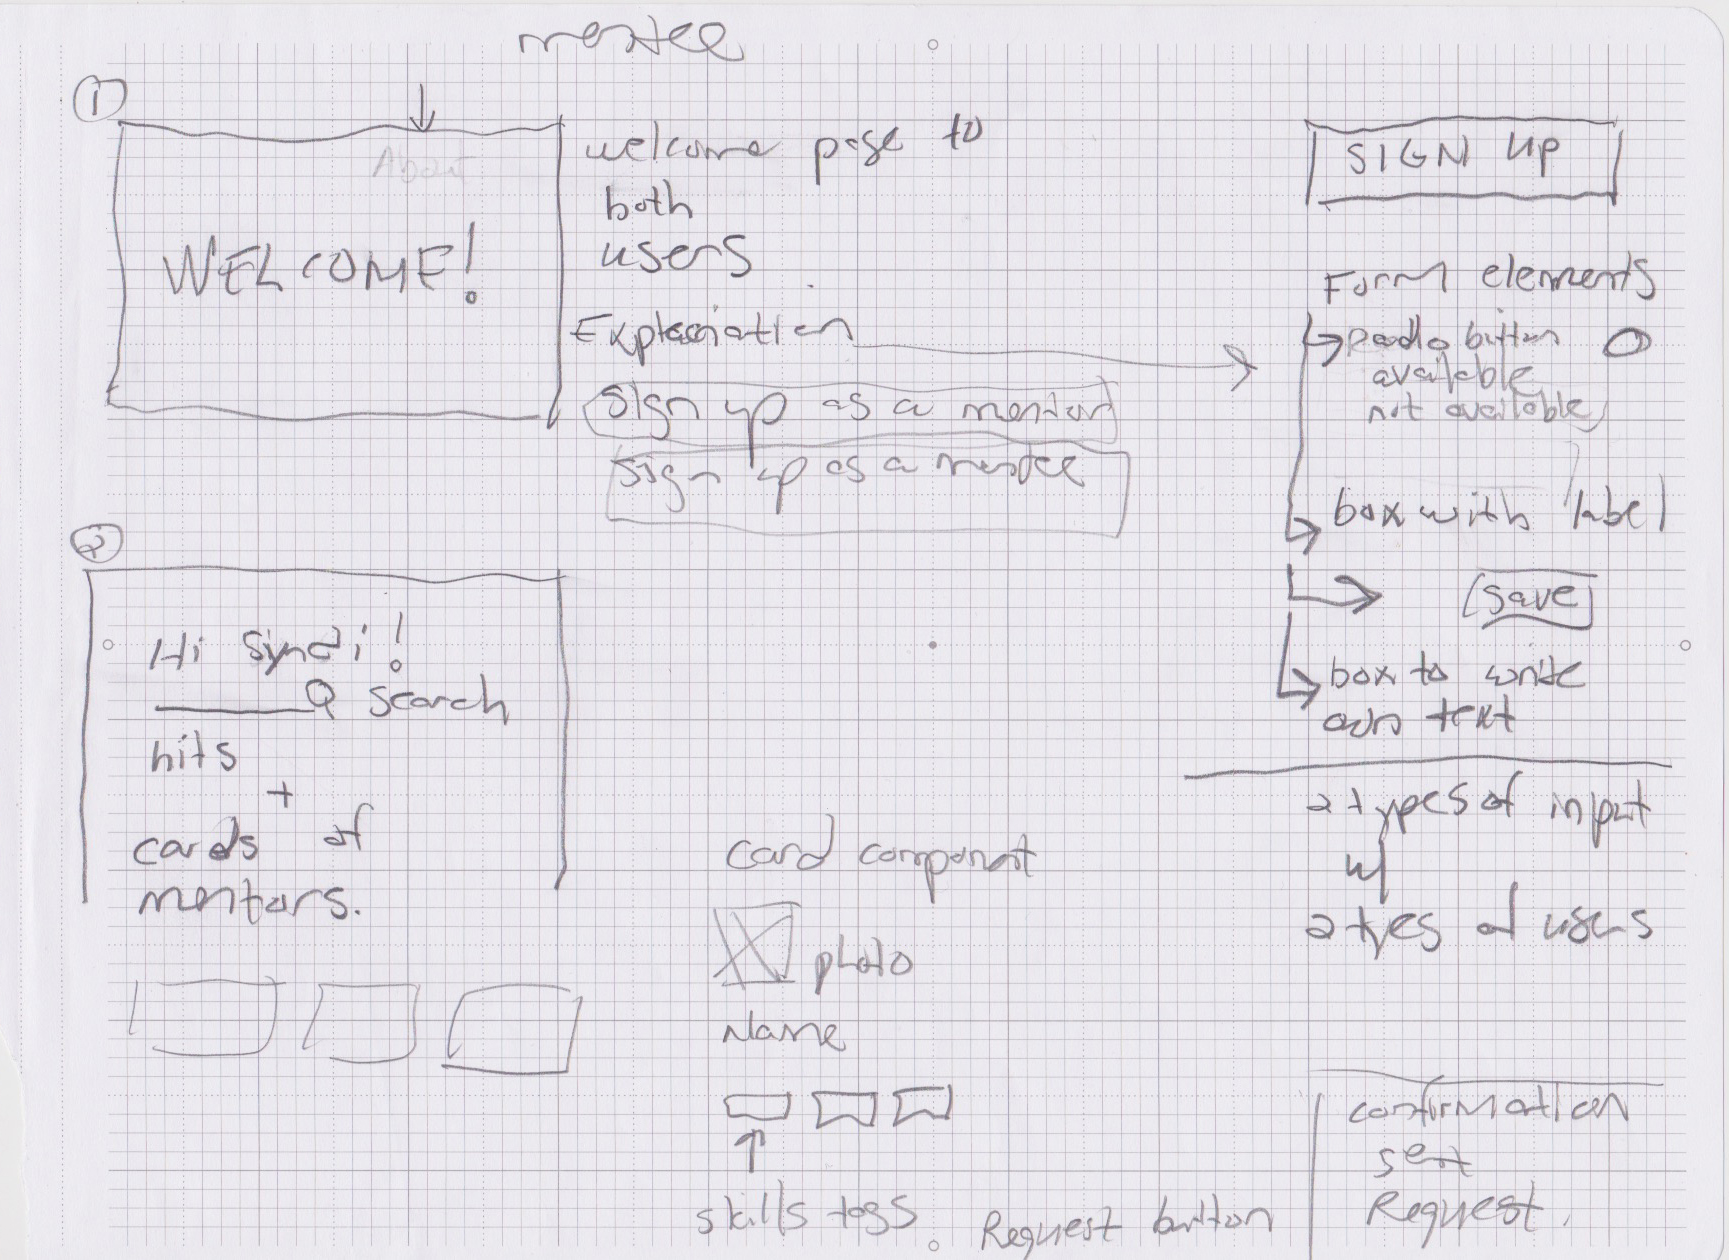 mentee
1
About
WELCOME!
welcome page to
both
users
Explanation
Sign up as a mentor
Sign up as a mentee
SIGN UP
Form elements
radio button
available
not available
box with label
save
box to write
own text
2 types of input
w/
2 tyes of users
2
Hi Syndi!
search
hits
+
cards of
mentors.
card component
photo
Name
skills tags
Request button
confirmation
sent
Request.